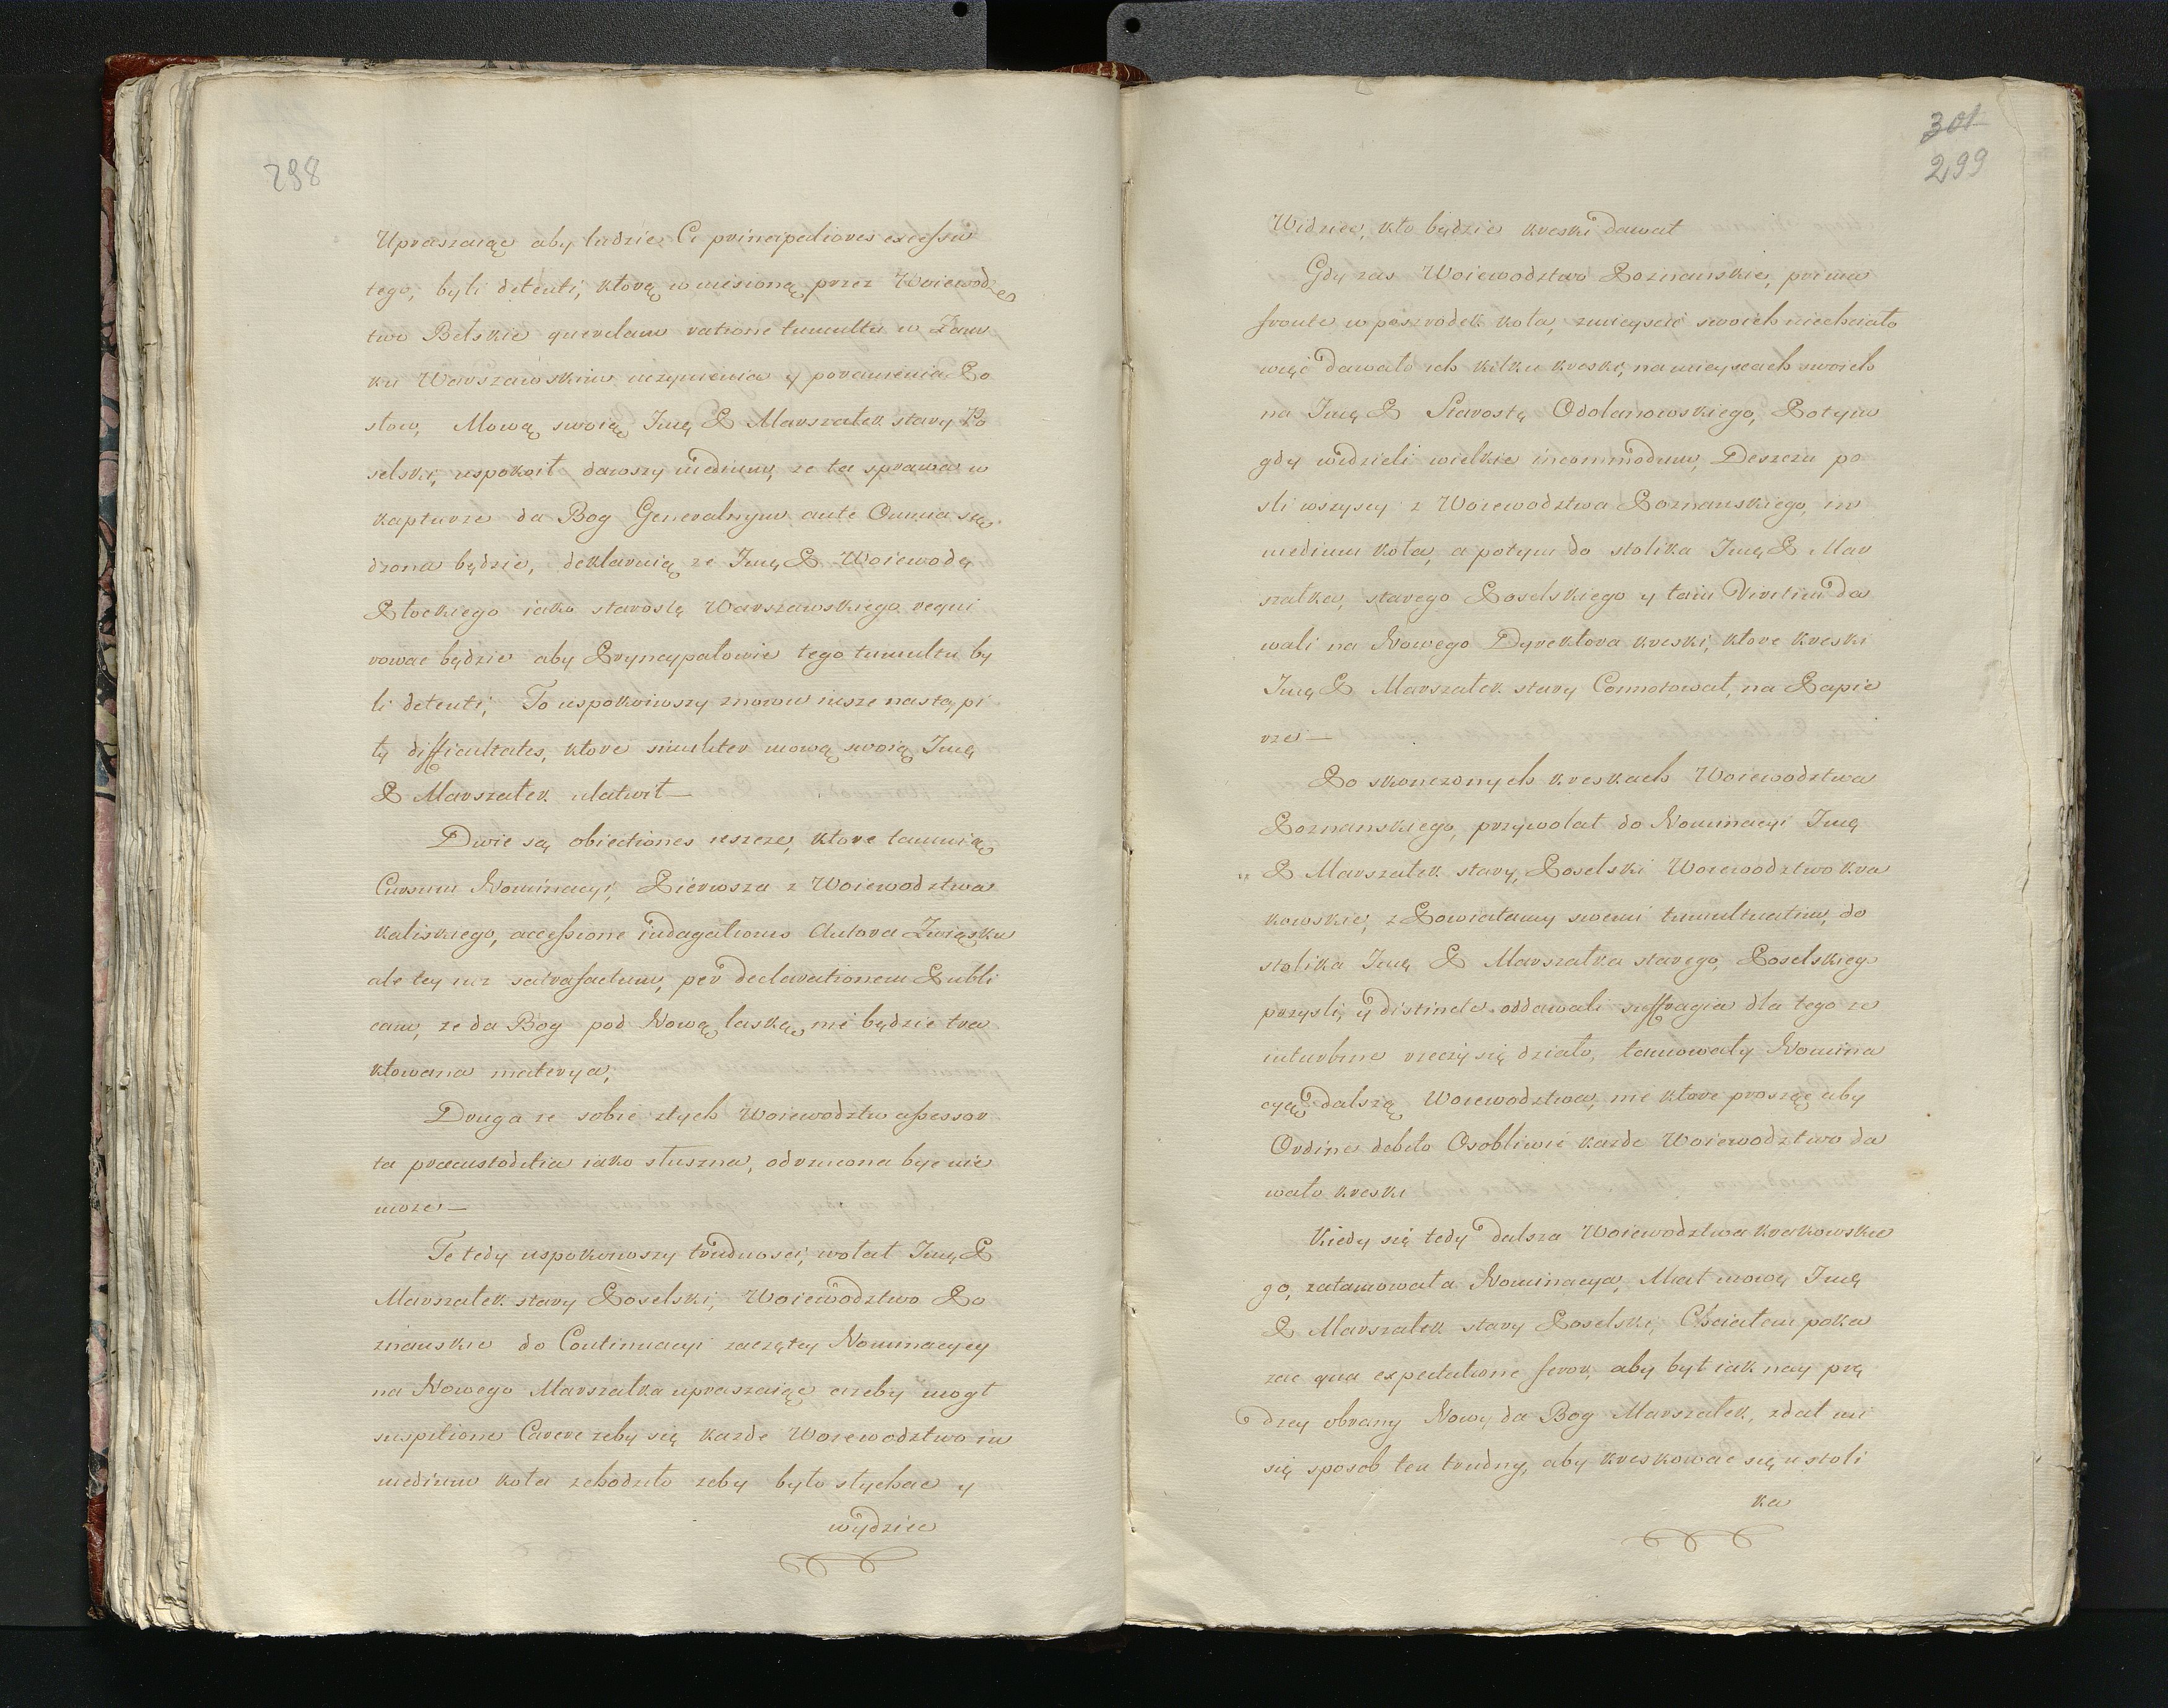 298
Upraszaiąc aby ludzie Ci principaliores excessu
tego, byli detenti, ktorą wniesioną przez Woiewodz
two Bełskie querelam ratione tumultu w Zam
ku Warszawskim uczynienia y poranienia Po
słow, Mową swoią Jmę P Marszałek stary Po
selski, uspokoił dawszy medium, ze ta sprawa w
kapturze da Bog Generalnym ante Omnia są
dzona będzie, deklaruią ze Jmę P Woiewodę
Płockiego iako starostę Warszawskiego requi
rować będzie aby Pryncypałowie tego tumultu by
li detenti, To uspokoiwszy znowu insze nastąpi
ły difficultates, ktore simliter mową swoią Jmę
P Marszałek ułatwił
Dwie są obiectiones ieszcze, ktore tamuią
Cursum Nominacyi, Pierwsza z Woiewodztwa
kaliskiego, accessione indagationis Autora Związku
ale tey iuz satrafactum, per declarationem Publi
cam, ze da Bog pod Nową laską, nie będzie tra
ktowana materya,
Druga ze sobie złych Woiewodztw assessor
ta praecustoditia iako słuszna, odrzucona być nie
moze
Te tedy uspokoiwszy trudnosci, wołał Jmę P
Marszałek stary Poselski, Woiewodztwo Po
znanskie do Continuacyi zaczętey Nominacyey
na Nowego Marszałka upraszaiąc azeby mogł
suspitione Carere zeby się kazde Woiewodztwo in
medium koła zchodziło zeby było słychac y
wydziec
301
299
Widziec, kto będzie kreski dawał
Gdy zas Woiewodztwo Poznanskie, prima
fronte w poszrodek koła, zmieysc swoich niechciało
więc dawało ich kilku kreski, na mieyscach swoich
na Jmę P Starostę Odolanowskiego, Potym
gdy widzieli wielkie incommodum, Deszczu po
sli wszyscy z Woiewodztwa Poznanskiego, in
medium koła, a potym do stolika Jmę P Mar
szałka, starego Poselskiego y tam Viritim da
wali na Nowego Dyrektora kreski, ktore kreski
Jmę P Marszałek stary Connotował, na Papie
rze
Po skonczonych kreskach Woiewodztwa
Poznanskiego, przywołał do Nominacyi Jmę
P Marszałek stary, Poselski Woiewodztwo kra
kowskie, z Powiatamy swemi tumultuatim, do
stolika Jmę P Marszałka starego, Poselskieg
przysli, y distincte oddawali suffragia dla tego ze
inturbine rzeczy się działo, tamowały Nomina
cyą dalszą Woiewodztwa, nie ktore prosząc aby
Ordine debito Osobliwie kazde Woiewodztwo da
wało kreski
Kiedy się tedy dalsza Woiewodztwa krakowskie
go, zatamowała Nominacya, Miał mowę Jmę
P Marszałek stary Poselski, Chciałem poka
zac qua expectatione feror, aby był iak nay prę
dzey obrany Nowy da Bog Marszałek, zdał mi
się sposob ten trudny, aby kreskowac się u stoli
ka